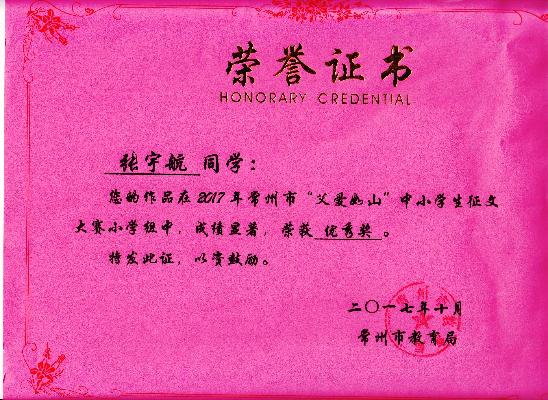 荣誉证书
HONORARY CREDENTIAL
张宇航 同学：
您的作品在2017年常州市“父爱如山”中小学生征文
大赛小学组中，成绩显著，荣获 优秀奖 。
特发此证，以资鼓励。
二〇一七年十月
常州市教育局